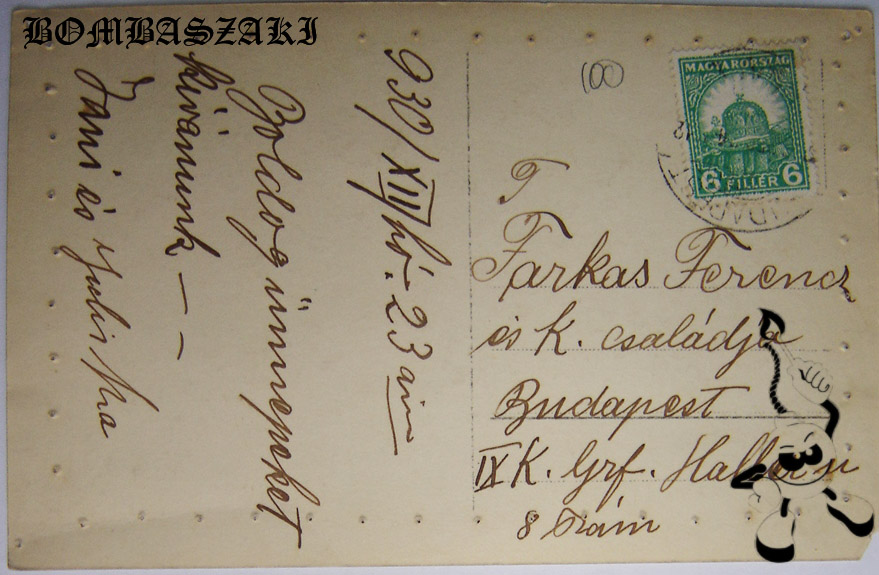 BOMBASZAKI
930/XII hó. 23 án
Boldog ünnepeket
kivánunk – –
Jani és Juliska
100
MAGYARORSZÁG
6 FILLÉR 6
BUDAPEST
T
Farkas Ferencz
és K. családja
Budapest
IX K. Grf. Haller u
8 szám